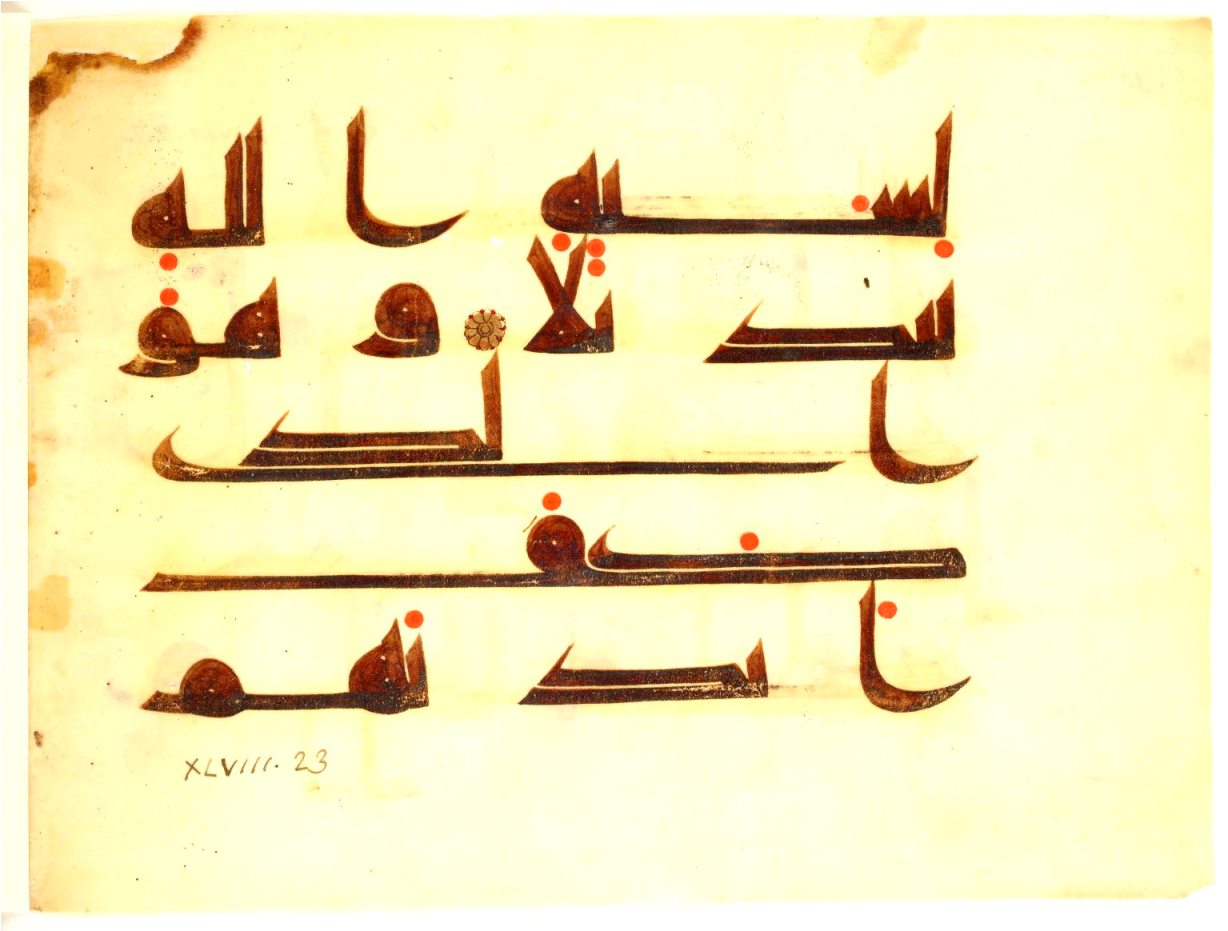 لسنة الله
تبديلا وهو
الذي
كف
أيديهم
XLVIII. 23